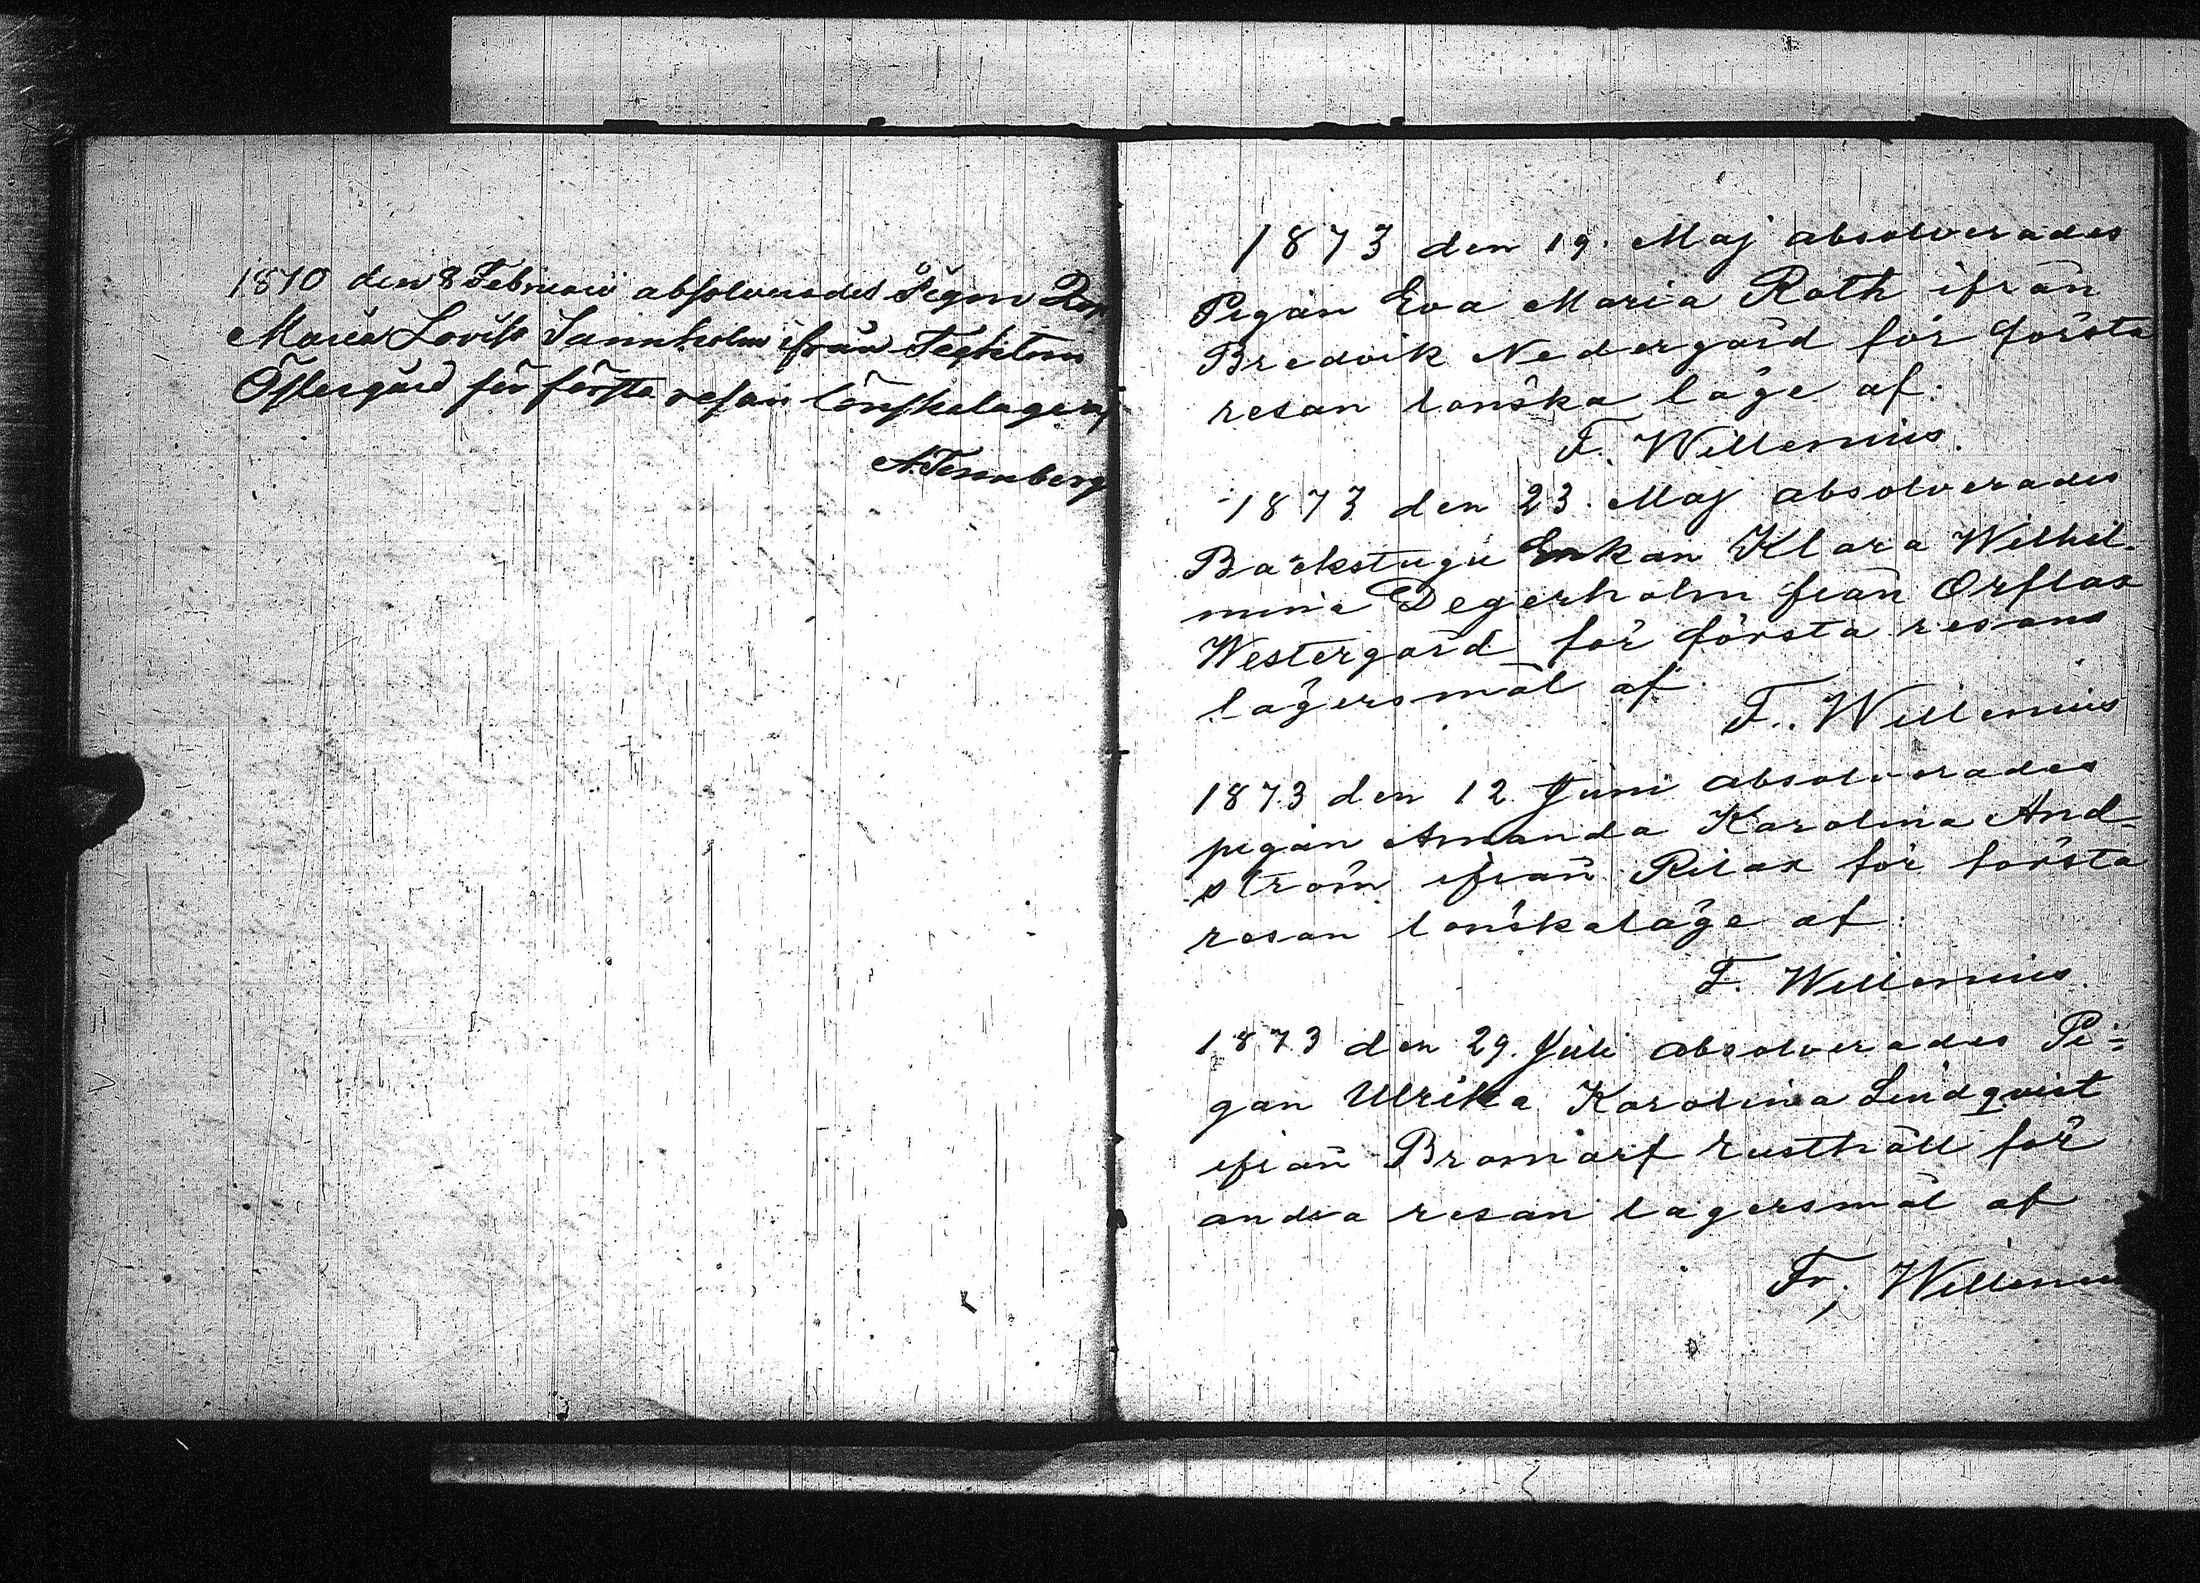 1870 den 8 Februari absolverades Pigan
Maria Lovisa Tannholm ifrån
Östergård för första resan lönskalage af
A. Tennberg
1873 den 19. Maj absolverades
Pigan Eva Maria Roth ifrån
Bredvik Nedergård för första
resan lönska läge af:
F. Willenius.
1873 den 23. Maj absolverades
Backstugu Enkan Klara Wilhel-
mina Degerholm från Orflax
Westergård för första resans
lägersmål af.
F. Willenius
1873 den 12 Juni absolverades
pigan Amanda Karolina And-
ström ifrån Rilax för första
resan lönskaläge af:
F. Willenius.
1873 den 29. Juli absolverades Pi-
gan Ulrika Karolina Lindqvist
ifrån Bromarf rusthåll för
andra resan lägersmål af
Fr, Willenius